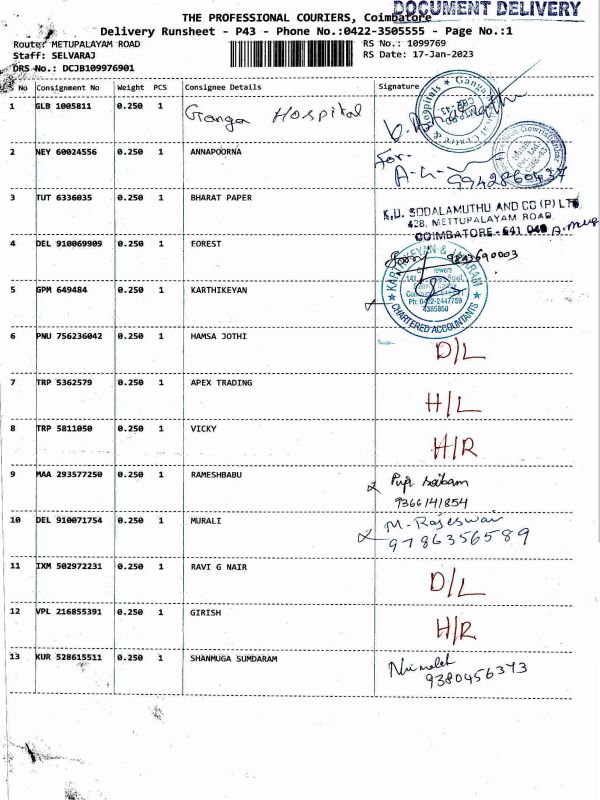 DOCUMENT DELIVERY
THE PROFESSIONAL COURIERS, Coimbatore
Delivery Runsheet - P43 - Phone No.:0422-3505555 - Page No.:1
Route: METUPALAYAM ROAD
RS No.: 1099769
Staff: SELVARAJ
RS Date: 17-Jan-2023
DRS No.: DCJB109976901
No Consignment No Weight PCS Consignee Details Signature
1 GLB 1005811 0.250 1 Ganga Hospital
2 NEY 60024556 0.250 1 ANNAPOORNA
For-
9942860437
3 TUT 6336035 0.250 1 BHARAT PAPER
K.U. SODALAMUTHU AND CO (P) LTD
428, METTUPALAYAM ROAD
COIMBATORE - 641 043
4 DEL 910069909 0.250 1 FOREST
9843690003
5 GPM 649484 0.250 1 KARTHIKEYAN
KARTHIKEYAN &
Towers
Ph: 0422-2447759
4365850
CHARTERED ACCOUNTANTS
6 PNU 756236042 0.250 1 HAMSA JOTHI D/L
7 TRP 5362579 0.250 1 APEX TRADING H/L
8 TRP 5811050 0.250 1 VICKY H/R
9 MAA 293577250 0.250 1 RAMESHBABU
9366141854
10 DEL 910071754 0.250 1 MURALI M. Rajeswari
9786356589
11 IXM 502972231 0.250 1 RAVI G NAIR D/L
12 VPL 216855391 0.250 1 GIRISH H/R
13 KUR 528615511 0.250 1 SHANMUGA SUMDARAM
9380456373